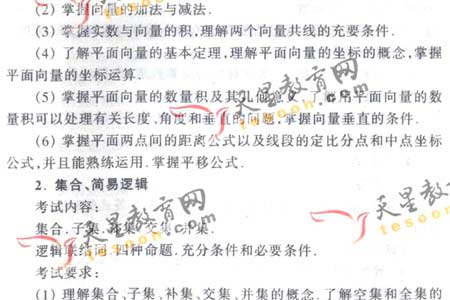 (2) 掌握向量的加法与减法.
(3) 掌握实数与向量的积,理解两个向量共线的充要条件.
(4) 了解平面向量的基本定理,理解平面向量的坐标的概念,掌握
平面向量的坐标运算.
(5) 掌握平面向量的数量积及其几何 用平面向量的数
量积可以处理有关长度、角度和垂直的问题,掌握向量垂直的条件.
(6) 掌握平面两点间的距离公式以及线段的定比分点和中点坐标
公式,并且能熟练运用.掌握平移公式.
2. 集合、简易逻辑
考试内容:
集合.子集.补集.交集.并集.
逻辑联结词.四种命题.充分条件和必要条件.
考试要求:
(1) 理解集合、子集、补集、交集、并集的概念.了解空集和全集的
天星教育网
tesoon.com
天星教育网
tesoon.com
天星教
tesoon